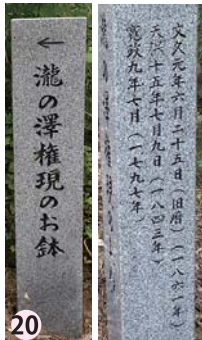 ←
瀧の澤権現のお鉢
20
文久元年六月二十五日(旧暦)(一八六一年)
天保十五年七月九日(一八四三年)
寛政九年七月(一七九七年)
瀧の澤権現のお鉢